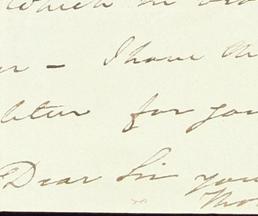 which in
r - I have the
letter for you
Dear Sir you